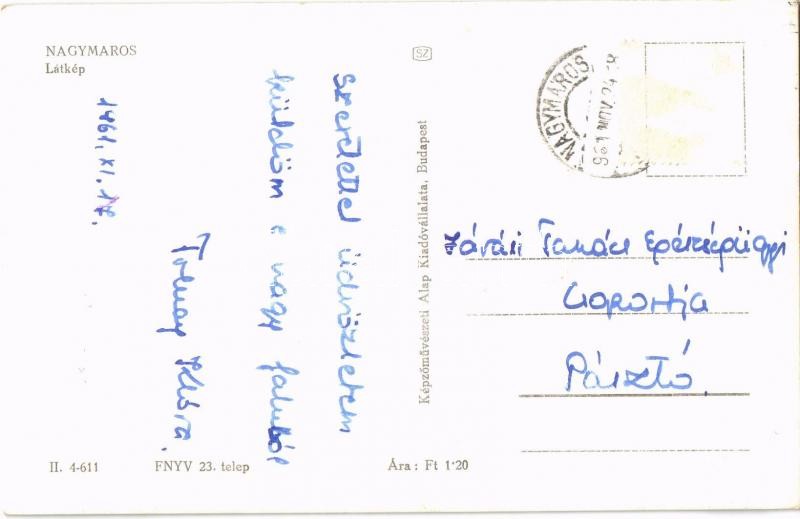 NAGYMAROS
Látkép
1961. XI. 17.
Szeretettel üdvözletem
küldöm a nagy faluból
Tolnay Klára.
SZ
Képzőművészeti Alap Kiadóvállalata, Budapest
NAGYMAROS
961 NOV 24
Járási Tanács Egészségügyi
Csoportja
Pásztó.
II. 4-611
FNYV 23. telep
Ára : Ft 1·20